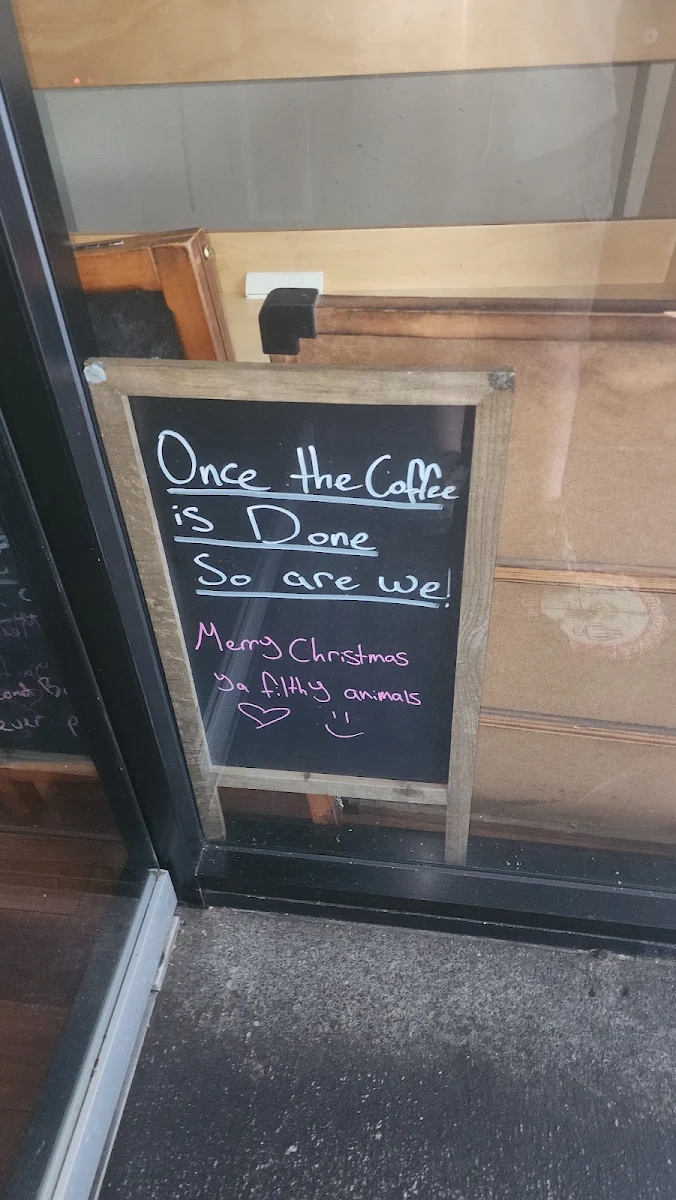 Once the Coffee
is Done
So are we!
Merry Christmas
ya filthy animals